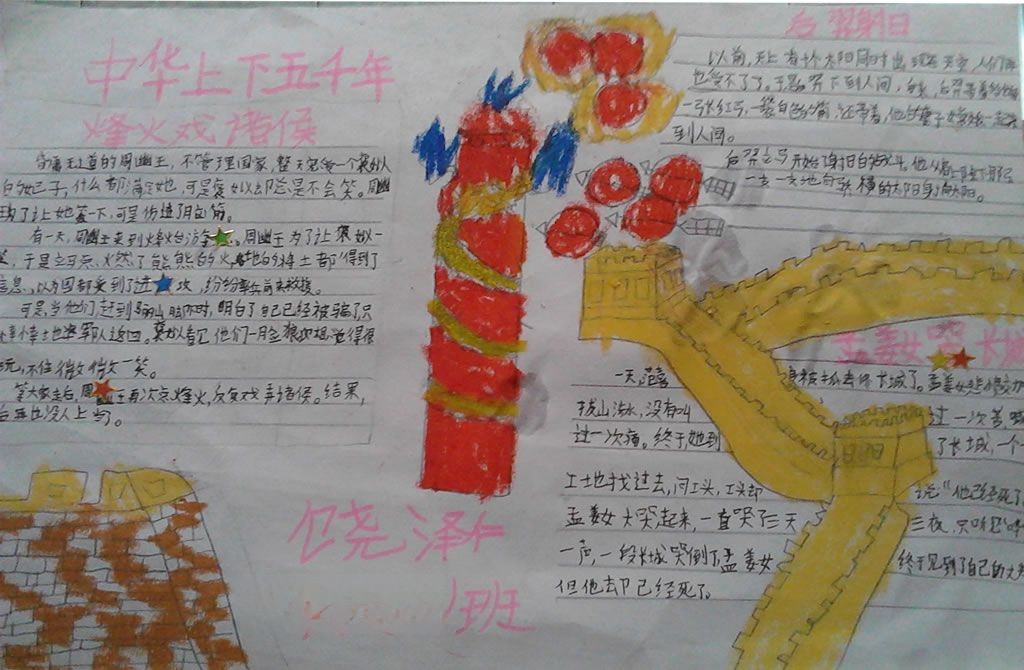 中华上下五千年
烽火戏诸侯
昏庸无道的周幽王，不管理国家，整天宠爱一个褒姒
的妃子，什么都满足她，可是褒姒去陷总是不会笑。周幽
王为了让她笑一下，可是伤透了脑筋。
有一天，周幽王来到烽火台游。周幽王为了让褒姒一
笑，于是立马点火然了能能的火，各地的将士都得到了
信息，以为国都受到了进攻，纷纷带兵前来救援。
可是，当他们赶到骊山脚下时，明白了自己已经被骗了只
地带军队返回。褒姒看见他们一脸狼狈相，觉得很
玩，不住微微一笑。
等大家走后，周王再次点烽火，反复戏弄诸侯。结果，
再也没人上当。
后羿射日
以前，天上有十个太阳同时出现在天空，人们
也受不了了。于是，羿下到人间，
一张红弓，一袋白色的箭，还带着，他的妻子嫦娥一起来
到人间。
后羿立马开始了射日的战斗，他从肩上取下那
一支一支地向骄横的太阳射向太阳。
孟姜女哭长城
一天，范喜
身被抓去修长城了。孟姜女悲愤
拔山涉水，没有叫
过一次苦，喊
过一次痛。终于她到
了长城，一个
工土地找过去，问工头，工头却
说“他已经死了
孟姜女大哭起来，一直哭了三天
三夜，只听
一声，一段长城哭倒了孟姜女
终于见到了自己的丈夫
但他去已经死了。
饶泽仁
班